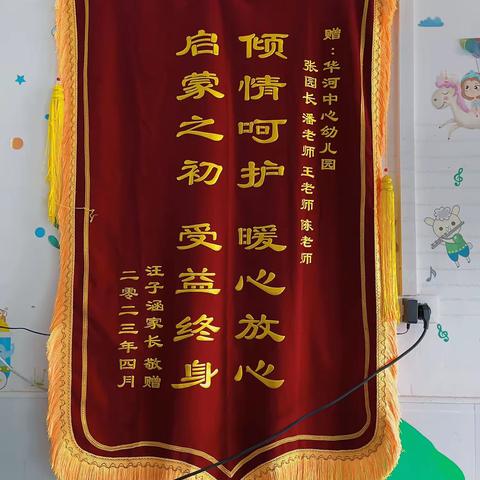 赠：华河中心幼儿园
张园长 潘老师 王老师 陈老师
倾情呵护 暖心放心
启蒙之初 受益终身
汪子涵家长 敬赠
二零二三年四月